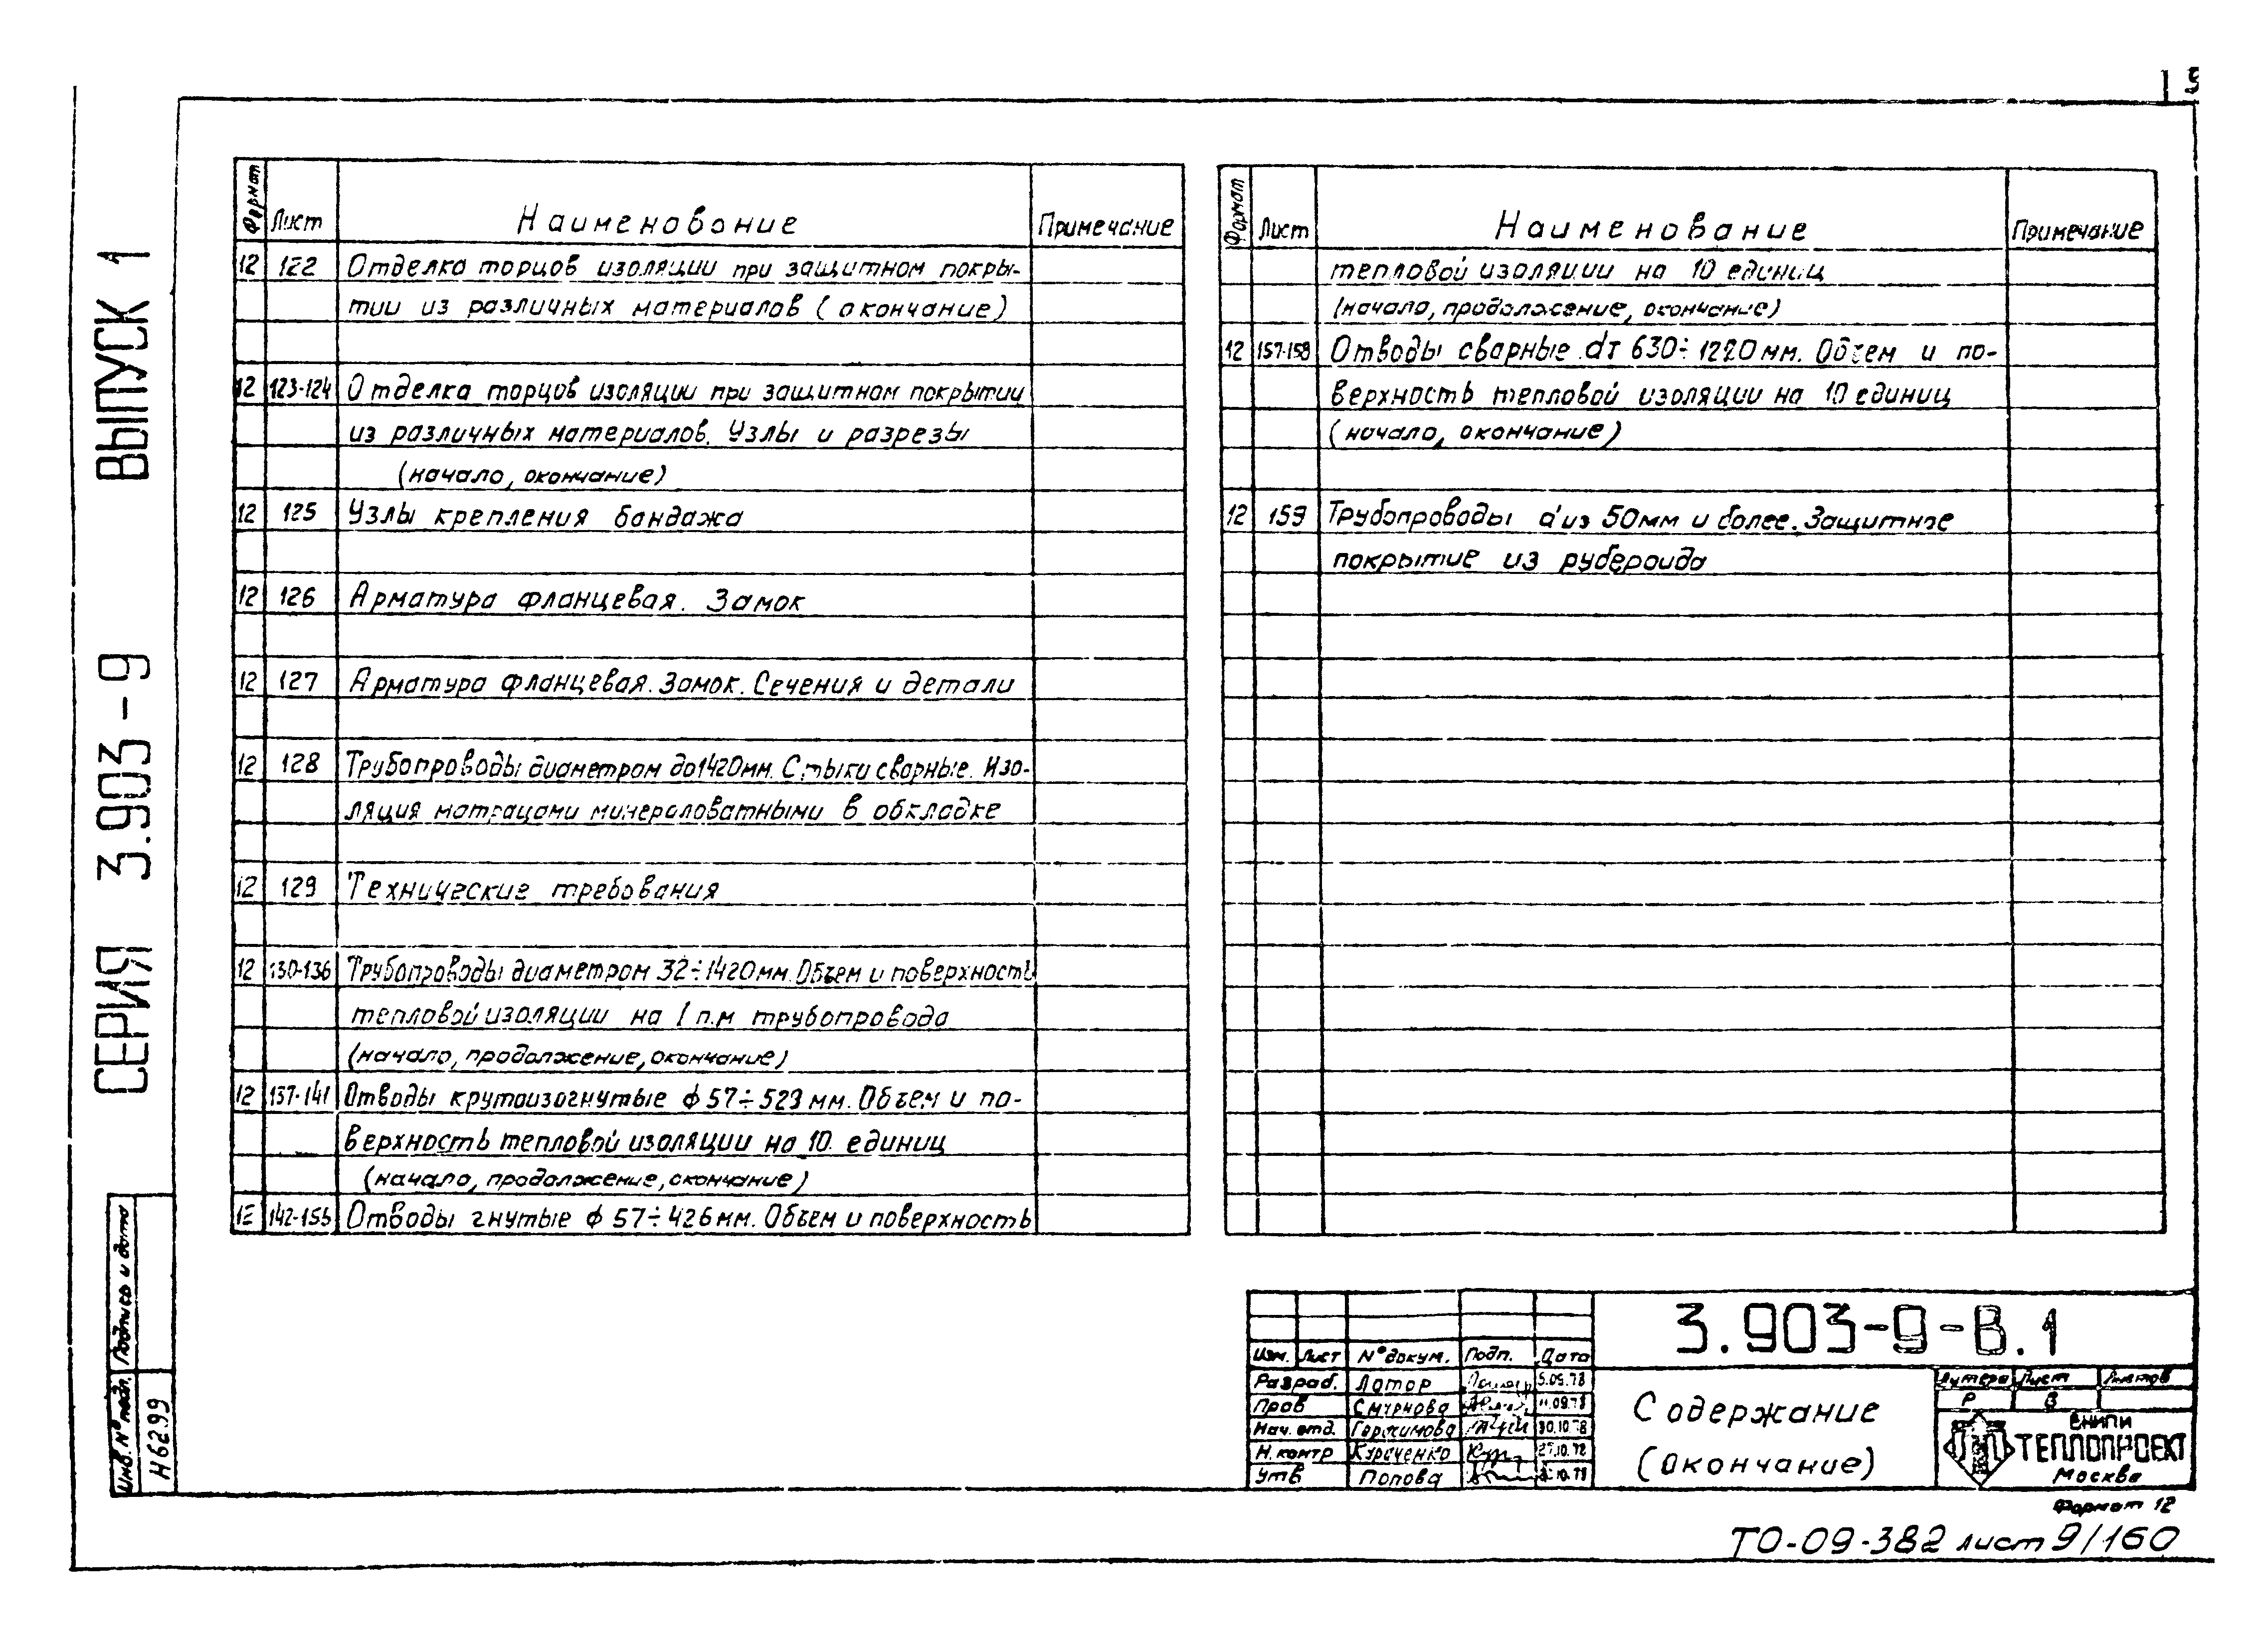 9
СЕРИЯ 3.903-9 ВЫПУСК 1
Формат Лист Наименование Примечание
12 122 Отделка торцов изоляции при защитном покры-
тии из различных материалов (окончание)
12 123-124 Отделка торцов изоляции при защитном покрытии
из различных материалов. Узлы и разрезы
(начало, окончание)
12 125 Узлы крепления бандажа
12 126 Арматура фланцевая. Замок
12 127 Арматура фланцевая. Замок. Сечения и детали
12 128 Трубопроводы диаметром до 1420мм. Стыки сварные. Изо-
ляция матрацами минераловатными в обкладке
12 129 Технические требования
12 130-136 Трубопроводы диаметром 32÷1420мм. Объем и поверхность
тепловой изоляции на 1 п.м трубопровода
(начало, продолжение, окончание)
12 137-141 Отводы крутоизогнутые ф 57÷529 мм. Объем и по-
верхность тепловой изоляции на 10 единиц
(начало, продолжение, окончание)
12 142-156 Отводы гнутые ф 57÷426мм. Объем и поверхность
Формат Лист Наименование Примечание
тепловой изоляции на 10 единиц
(начало, продолжение, окончание)
12 157-158 Отводы сварные dт 630÷1220мм. Объем и по-
верхность тепловой изоляции на 10 единиц
(начало, окончание)
12 159 Трубопроводы dиз 50мм и более. Защитное
покрытие из рубероида
Подпись и дата
Инв. № подл.
Н6299
Изм. Лист № докум. Подп. Дата
Разраб. Лотор 5.09.78
Пров Смирнова 11.09.78
Нач. отд. 30.10.78
Н. контр 27.10.78
Утв Попова
3.903-9-В.1
Содержание
(Окончание)
Литера Лист Листов
Р 8
ВНИПИ
ТЕПЛОПРОЕКТ
Москва
Формат 12
ТО-09-382 лист 9/160